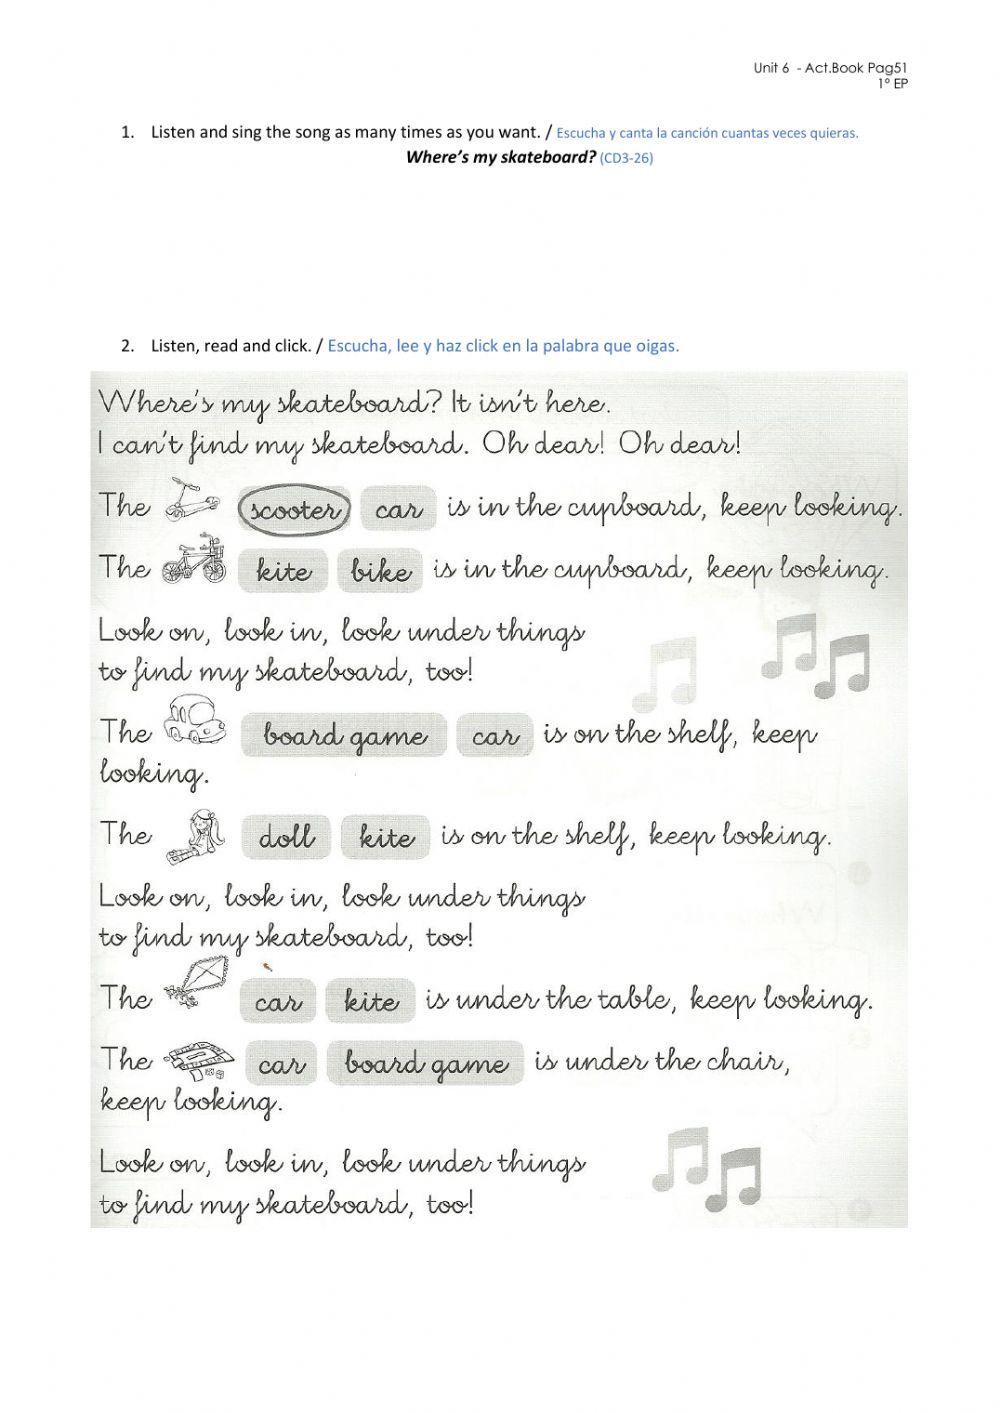 Unit 6 - Act.Book Pag51
1º EP
1. Listen and sing the song as many times as you want. / Escucha y canta la canción cuantas veces quieras.
Where's my skateboard? (CD3-26)
2. Listen, read and click. / Escucha, lee y haz click en la palabra que oigas.
Where's my skateboard? It isn't here.
I can't find my skateboard. Oh dear! Oh dear!
The scooter car is in the cupboard, keep looking.
The kite bike is in the cupboard, keep looking.
Look on, look in, look under things
to find my skateboard, too!
The board game car is on the shelf, keep
looking.
The doll kite is on the shelf, keep looking.
Look on, look in, look under things
to find my skateboard, too!
The car kite is under the table, keep looking.
The car board game is under the chair,
keep looking.
Look on, look in, look under things
to find my skateboard, too!